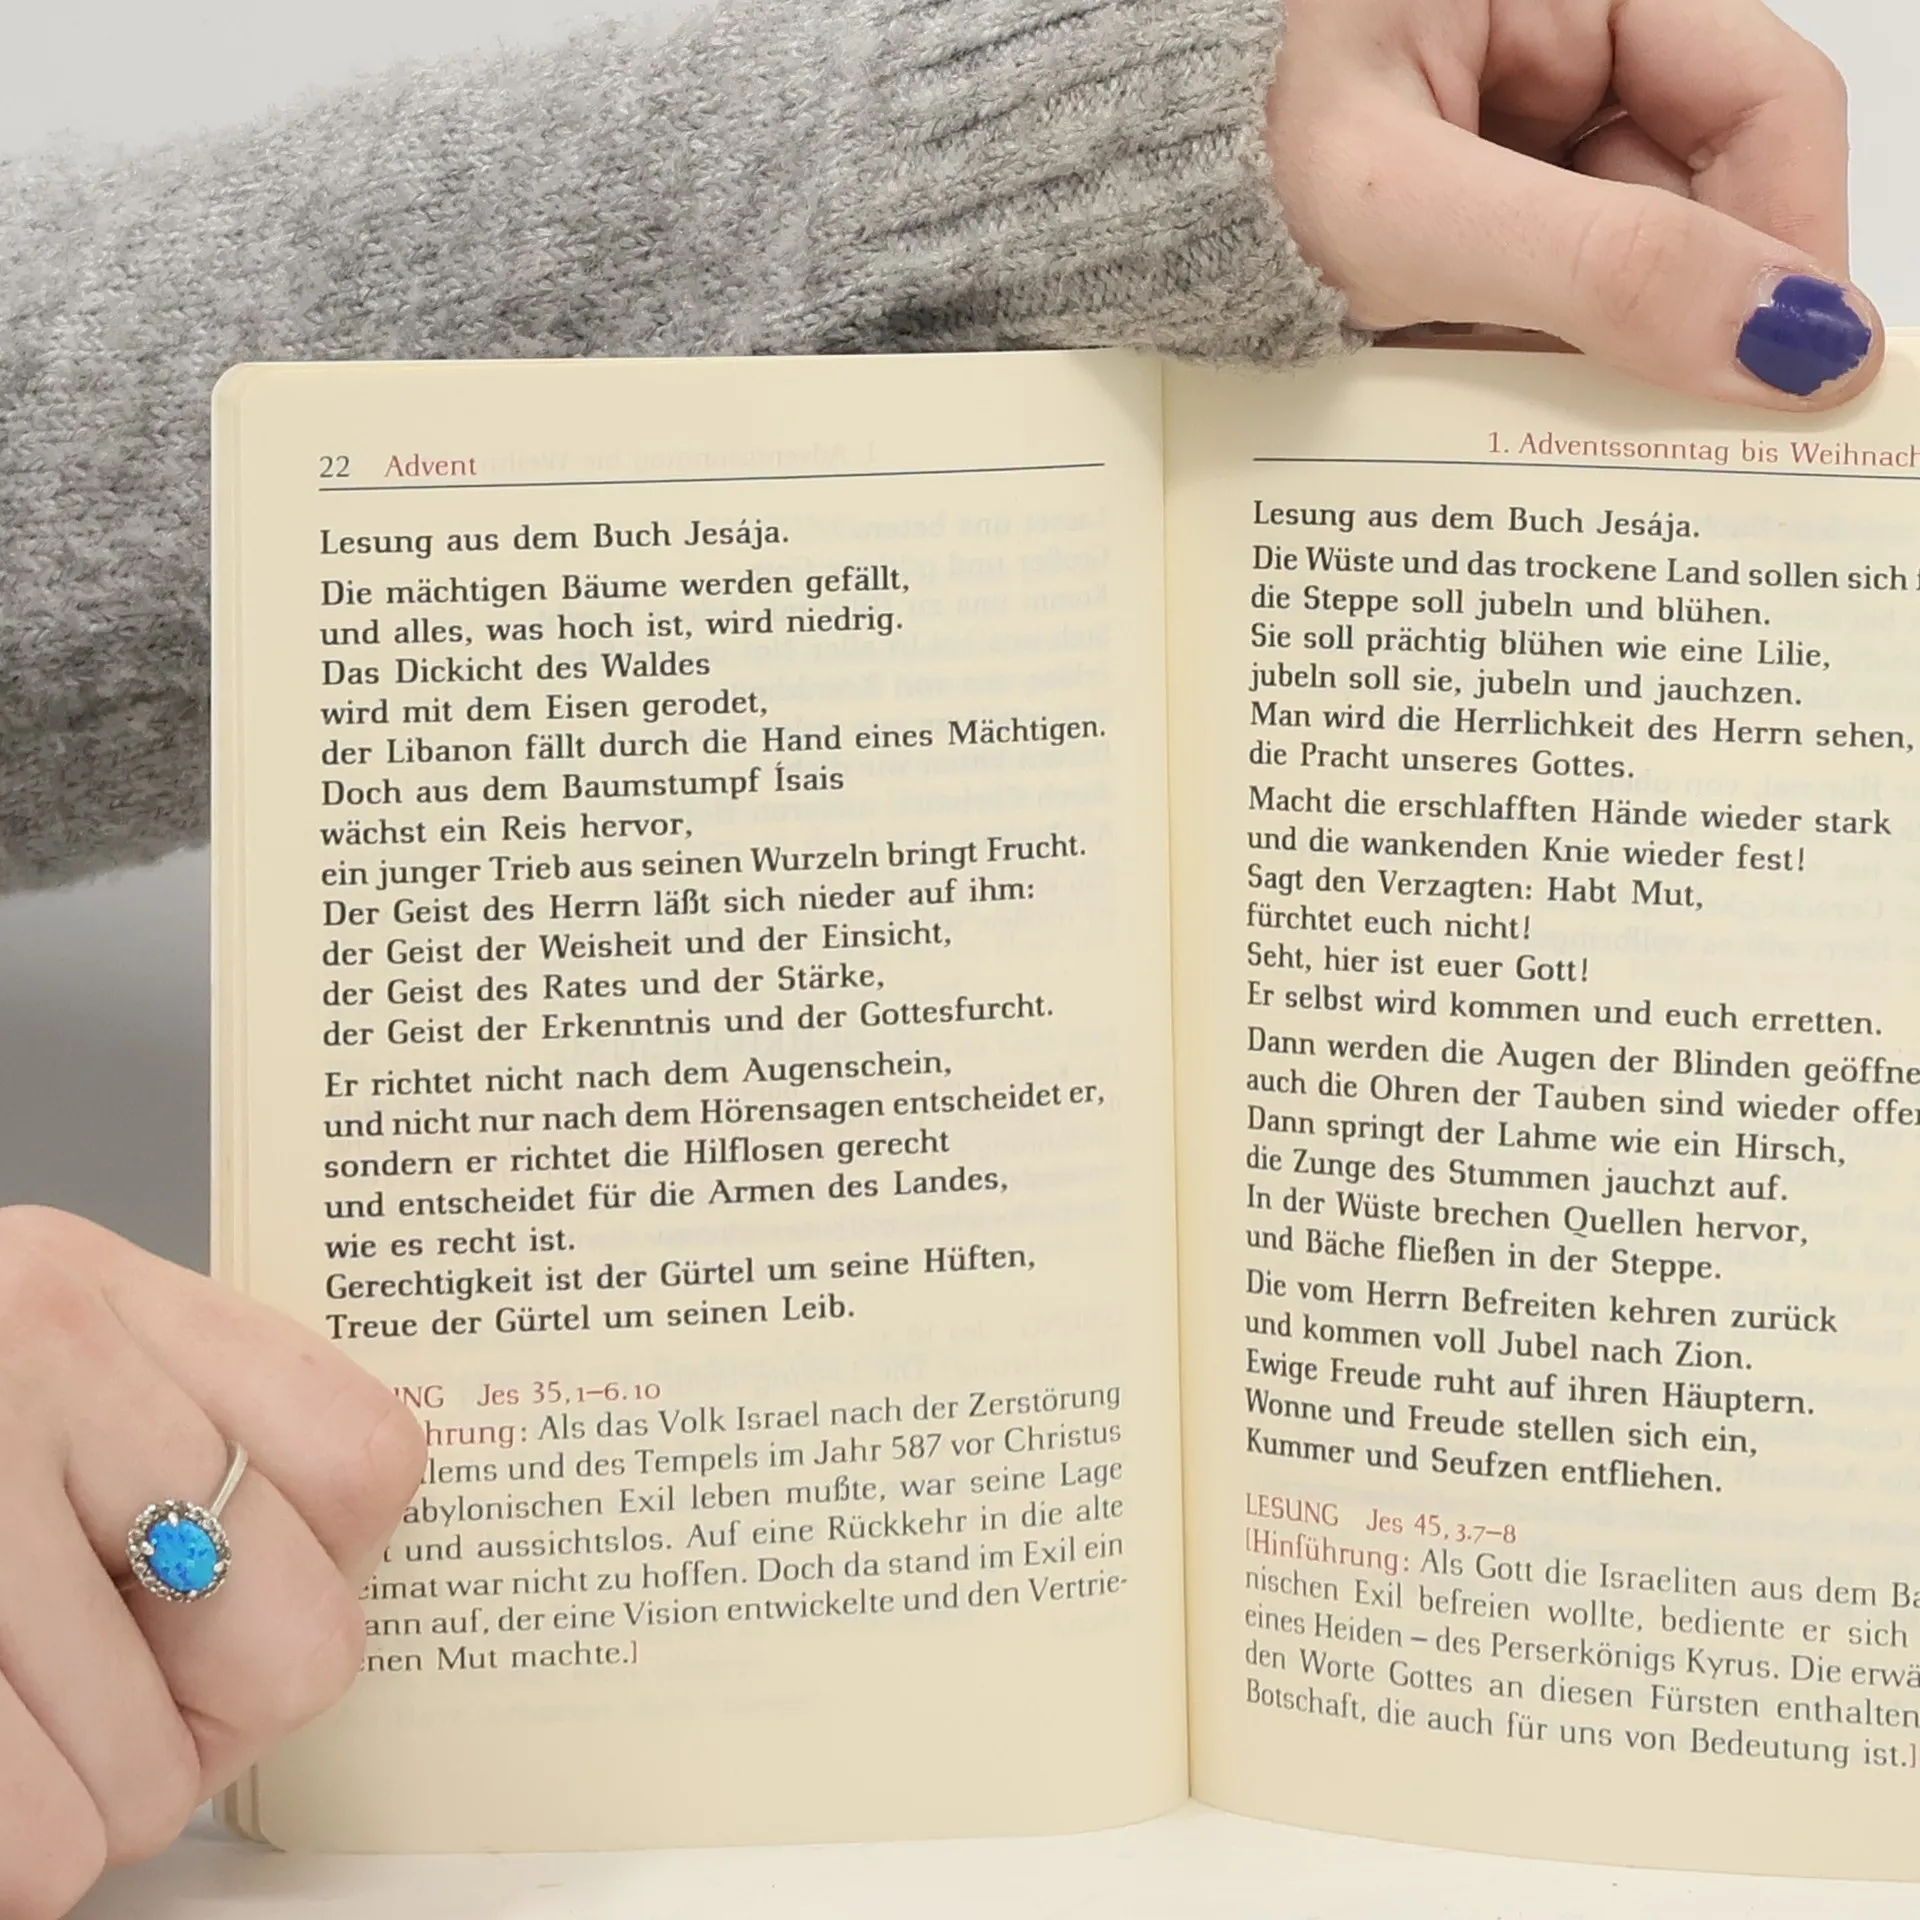 22 Advent
Lesung aus dem Buch Jesája.
Die mächtigen Bäume werden gefällt,
und alles, was hoch ist, wird niedrig.
Das Dickicht des Waldes
wird mit dem Eisen gerodet,
der Libanon fällt durch die Hand eines Mächtigen.
Doch aus dem Baumstumpf Ísais
wächst ein Reis hervor,
ein junger Trieb aus seinen Wurzeln bringt Frucht.
Der Geist des Herrn läßt sich nieder auf ihm:
der Geist der Weisheit und der Einsicht,
der Geist des Rates und der Stärke,
der Geist der Erkenntnis und der Gottesfurcht.
Er richtet nicht nach dem Augenschein,
und nicht nur nach dem Hörensagen entscheidet er,
sondern er richtet die Hilflosen gerecht
und entscheidet für die Armen des Landes,
wie es recht ist.
Gerechtigkeit ist der Gürtel um seine Hüften,
Treue der Gürtel um seinen Leib.
NG Jes 35,1–6.10
hrung: Als das Volk Israel nach der Zerstörung
lems und des Tempels im Jahr 587 vor Christus
abylonischen Exil leben mußte, war seine Lage
t und aussichtslos. Auf eine Rückkehr in die alte
eimat war nicht zu hoffen. Doch da stand im Exil ein
ann auf, der eine Vision entwickelte und den Vertrie-
enen Mut machte.]
1. Adventssonntag bis Weihnach
Lesung aus dem Buch Jesája.
Die Wüste und das trockene Land sollen sich
die Steppe soll jubeln und blühen.
Sie soll prächtig blühen wie eine Lilie,
jubeln soll sie, jubeln und jauchzen.
Man wird die Herrlichkeit des Herrn sehen,
die Pracht unseres Gottes.
Macht die erschlafften Hände wieder stark
und die wankenden Knie wieder fest!
Sagt den Verzagten: Habt Mut,
fürchtet euch nicht!
Seht, hier ist euer Gott!
Er selbst wird kommen und euch erretten.
Dann werden die Augen der Blinden geöffne
auch die Ohren der Tauben sind wieder offen
Dann springt der Lahme wie ein Hirsch,
die Zunge des Stummen jauchzt auf.
In der Wüste brechen Quellen hervor,
und Bäche fließen in der Steppe.
Die vom Herrn Befreiten kehren zurück
und kommen voll Jubel nach Zion.
Ewige Freude ruht auf ihren Häuptern.
Wonne und Freude stellen sich ein,
Kummer und Seufzen entfliehen.
LESUNG Jes 45,3.7–8
[Hinführung: Als Gott die Israeliten aus dem Ba
nischen Exil befreien wollte, bediente er sich
eines Heiden – des Perserkönigs Kyrus. Die erwä
den Worte Gottes an diesen Fürsten enthalten
Botschaft, die auch für uns von Bedeutung ist.]